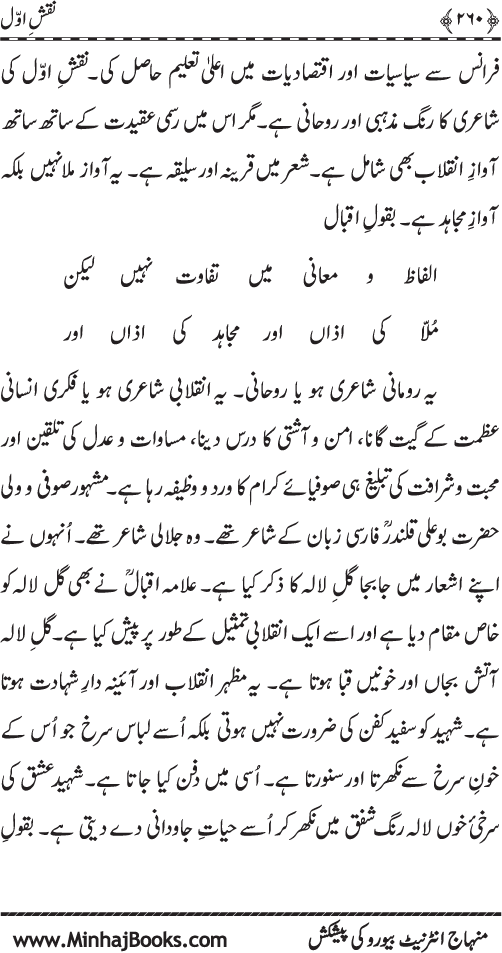 ﴿۲۶۰﴾ نقشِ اوّل
فرانس سے سیاسیات اور اقتصادیات میں اعلیٰ تعلیم حاصل کی۔ نقشِ اوّل کی
شاعری کا رنگ مذہبی اور روحانی ہے۔ مگر اس میں رسمی عقیدت کے ساتھ ساتھ
آوازِ انقلاب بھی شامل ہے۔ شعر میں قرینہ اور سلیقہ ہے۔ یہ آواز ملا نہیں بلکہ
آوازِ مجاہد ہے۔ بقولِ اقبال
الفاظ و معانی میں تفاوت نہیں لیکن
مُلّا کی اذاں اور مجاہد کی اذاں اور
یہ رومانی شاعری ہو یا روحانی۔ یہ انقلابی شاعری ہو یا فکری انسانی
عظمت کے گیت گانا، امن و آشتی کا درس دینا، مساوات و عدل کی تلقین اور
محبت و شرافت کی تبلیغ ہی صوفیائے کرام کا ورد و وظیفہ رہا ہے۔ مشہور صوفی و ولی
حضرت بوعلی قلندرؒ فارسی زبان کے شاعر تھے۔ وہ جلالی شاعر تھے۔ اُنہوں نے
اپنے اشعار میں جابجا گلِ لالہ کا ذکر کیا ہے۔ علامہ اقبالؒ نے بھی گل لالہ کو
خاص مقام دیا ہے اور اسے ایک انقلابی تمثیل کے طور پر پیش کیا ہے۔ گلِ لالہ
آتش بجاں اور خونیں قبا ہوتا ہے۔ یہ مظہرِ انقلاب اور آئینہ دارِ شہادت ہوتا
ہے۔ شہید کو سفید کفن کی ضرورت نہیں ہوتی بلکہ اُسے لباس سرخ جو اُس کے
خونِ سرخ سے نکھرتا اور سنورتا ہے۔ اُسی میں دفن کیا جاتا ہے۔ شہیدِ عشق کی
سرخیٔ خوں لالہ رنگ شفق میں نکھر کر اُسے حیاتِ جاودانی دے دیتی ہے۔ بقولِ
منہاج انٹرنیٹ بیورو کی پیشکش www.MinhajBooks.com